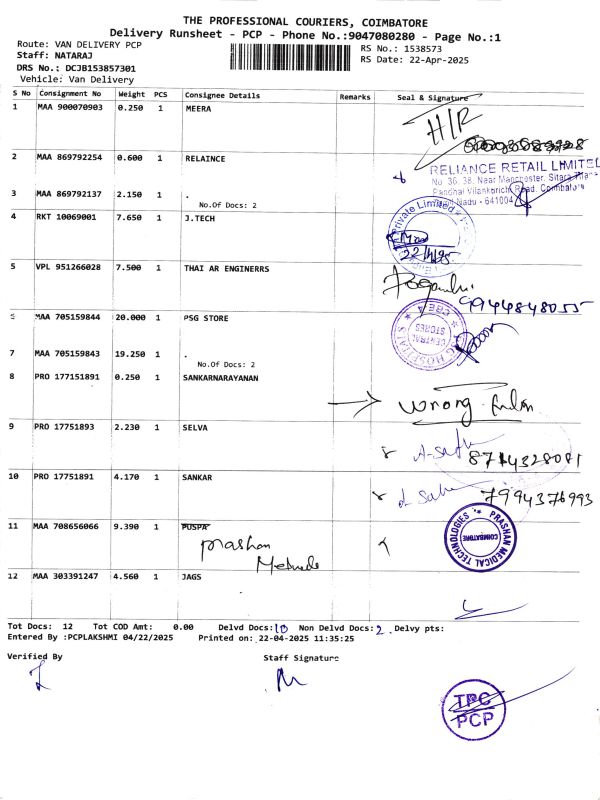 THE PROFESSIONAL COURIERS, COIMBATORE
Delivery Runsheet - PCP - Phone No.:9047080280 - Page No.:1
Route: VAN DELIVERY PCP
RS No.: 1538573
Staff: NATARAJ
RS Date: 22-Apr-2025
DRS No.: DCJB153857301
Vehicle: Van Delivery
S No Consignment No Weight PCS Consignee Details Remarks Seal & Signature
1 MAA 900070903 0.250 1 MEERA
H/R
2 MAA 869792254 0.600 1 RELAINCE
RELIANCE RETAIL LIMITED
No 36, 38, Near Manchester, Sitara
Pandhal Vilankurichi Road, Coimbatore
Tamil Nadu - 641004
3 MAA 869792137 2.150 1 .
No.Of Docs: 2
4 RKT 10069001 7.650 1 J.TECH
Private Limited
22/4/25
5 VPL 951266028 7.500 1 THAI AR ENGINERRS
9944848055
6 MAA 705159844 20.000 1 PSG STORE
PSG HOSPITALS
CENTRAL STORES
7 MAA 705159843 19.250 1 .
No.Of Docs: 2
8 PRO 177151891 0.250 1 SANKARNARAYANAN
wrong
9 PRO 17751893 2.230 1 SELVA
8714328081
10 PRO 17751891 4.170 1 SANKAR
7994376993
11 MAA 708656066 9.390 1 PUSPA
Prashan
PRASHAN MEDICAL TECHNOLOGIES
COIMBATORE
12 MAA 303391247 4.560 1 JAGS
Tot Docs: 12 Tot COD Amt: 0.00 Delvd Docs: 10 Non Delvd Docs: 2 Delvy pts:
Entered By :PCPLAKSHMI 04/22/2025 Printed on: 22-04-2025 11:35:25
Verified By Staff Signature
TPC
PCP